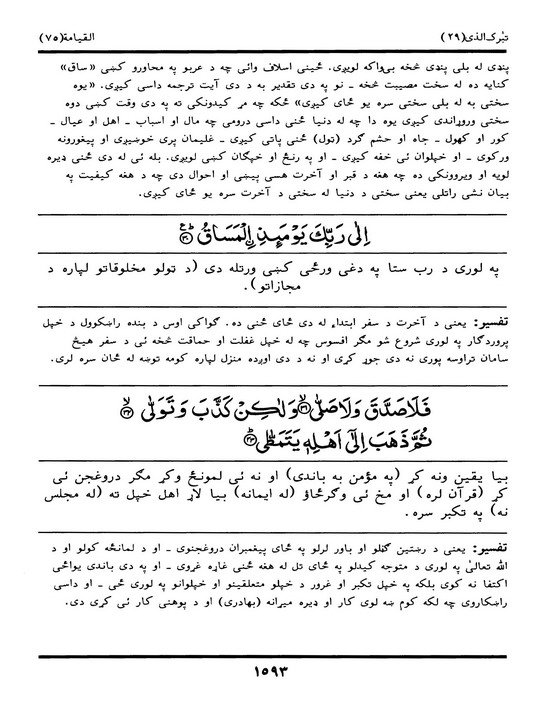 تبٰرک الذی (۲۹) القیامة (۷۵)
پنډی له بلی پنډی څخه بی‌واکه لویږی. ځینی اسلاف وائی چه د عربو په محاورو کښی «ساق»
کنایه ده له سخت مصیبت څخه ـ نو په دی تقدیر به د دی آیت ترجمه داسی کیږی. «یوه
سختی به له بلی سختی سره یو ځای کیږی» ځکه چه مړ کیدونکی ته په دی وقت کښی دوه
سختی وروړاندی کیږی یوه دا چه له دنیا ځنی داسی درومی چه مال او اسباب ـ اهل او عیال ـ
کور او کهول ـ جاه او حشم ګرد (ټول) ځنی پاتی کیږی ـ غلیمان پری خوښیږی او پیغورونه
ورکوی ـ او خپلوان ئی خفه کیږی ـ او په رنځ او خپګان کښی لویږی. بله ئی له دی ځنی ډیره
لویه او ویروونکی ده چه هغه د قبر او آخرت هسی پیښی او احوال دی چه د هغه کیفیت په
بیان نشی راتلی یعنی سختی د دنیا له سختی د آخرت سره یو ځای کیږی.
اِلٰی رَبِّكَ یَوْمَىِٕذِ ࣙالْمَسَاقُ ﴿۳۰﴾
په لوری د رب ستا په دغی ورځی کښی ورتله دی (د ټولو مخلوقاتو لپاره د
مجازاتو).
تفسیر: یعنی د آخرت د سفر ابتداء له دی ځای ځنی ده. ګواکی اوس د بنده راښکوول د خپل
پروردګار په لوری شروع شو مګر افسوس چه له خپل غفلت او حماقت څخه ئی د سفر هیڅ
سامان تراوسه پوری نه دی جوړ کړی او نه د دی اوږده منزل لپاره کومه توښه له ځان سره لری.
فَلَا صَدَّقَ وَلَا صَلّٰی ﴿۳۱﴾ وَلٰكِنْ كَذَّبَ وَتَوَلّٰی ﴿۳۲﴾
ثُمَّ ذَهَبَ اِلٰۤی اَهْلِهٖ یَتَمَطّٰی ﴿۳۳﴾
بیا یقین ونه کړ (په مؤمن به باندی) او نه ئی لمونځ وکړ مګر دروغجن ئی
کړ (قرآن لره) او مخ ئی وګرځاؤ (له ایمانه) بیا لاړ اهل خپل ته (له مجلس
نه) په تکبر سره.
تفسیر: یعنی د رښتین ګڼلو او باور لرلو په ځای پیغمبران دروغجنوی ـ او د لمانځه کولو او د
الله تعالیٰ په لوری د متوجه کیدلو په ځای تل له هغه ځنی غاړه غړوی ـ او په دی باندی یواځی
اکتفا نه کوی بلکه په خپل تکبر او غرور د خپلو متعلقینو او خپلوانو په لوری ځی ـ او داسی
راښکاروی چه لکه کوم ښه لوی کار او ډیره میړانه (بهادری) او د پوهنی کار ئی کړی دی.
۱۵۹۳